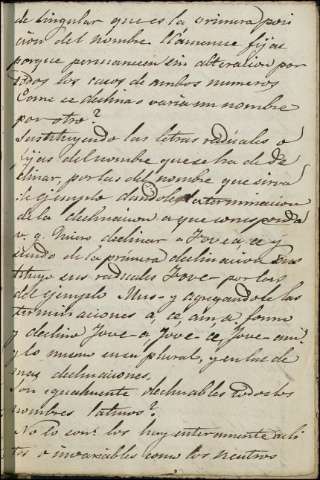 de singular que es la primera posi
cion del nombre. Llamanse fijas
porque permanecen sin alteracion por
todos los casos de ambos numeros
Como se declina o varia un nombre
por otro?
Sustituyendo las letras radicales o
fijas del nombre que se ha de de
clinar, por las del nombre que sirva
de ejemplo dandole la terminacion
de la declinacion a que corresponda
v. g. Quiero declinar a Fovea æ y
siendo de la primera declinacion sus
tituyo sus radicales Fove por las
del ejemplo Mus- y agregandole las
terminaciones a, æ am a. formo
y declino Fove-a Fove-æ, Fove-am.
y lo mismo en su plural, y en las de
mas declinaciones.
Son igualmente declinables todos los
nombres latinos?
No lo son: los hay enteramente acli
tos o invariables como los neutros